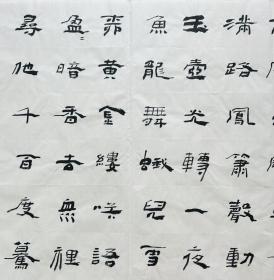 滿路鳳簫聲動
玉壺光轉一夜
魚龍舞蛾兒雪
柳黃金縷咲語
盈〻暗香去眾裡
尋他千百度驀